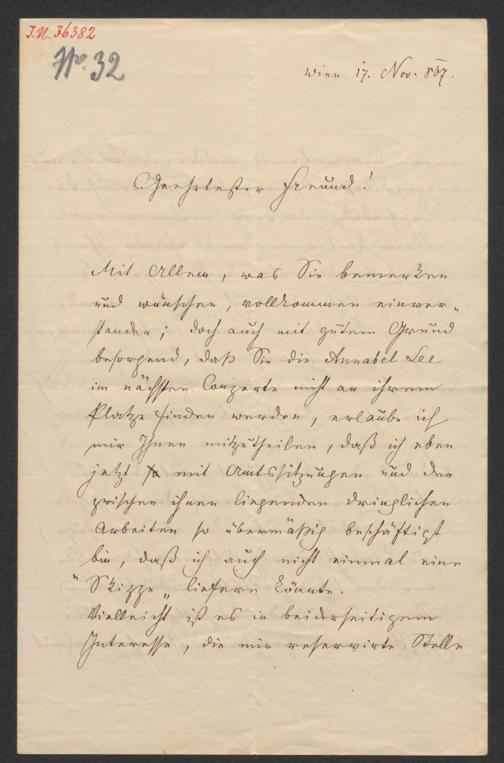 I.N. 36382
No. 32
Wien 17. Nov. 867.
Geehrtester Freund!
Mit Allem, was Sie bemerken
und wünschen, vollkommen einver-
standen; doch auch mit gutem Grund
besorgend, daß Sie die Annabel Lee
im nächsten Conzerte nicht an ihrem
Platze finden werden, erlaube ich
mir Ihnen mitzutheilen, daß ich eben
jetzt mit Amtssitzungen und den
zwischen ihnen liegenden dringlichen
Arbeiten so übermäßig beschäftigt
bin, daß ich auch nicht einmal eine
"Skizze" liefern könnte.
Vielleicht ist es in beiderseitigem
Interesse, die mir reservirte Stelle